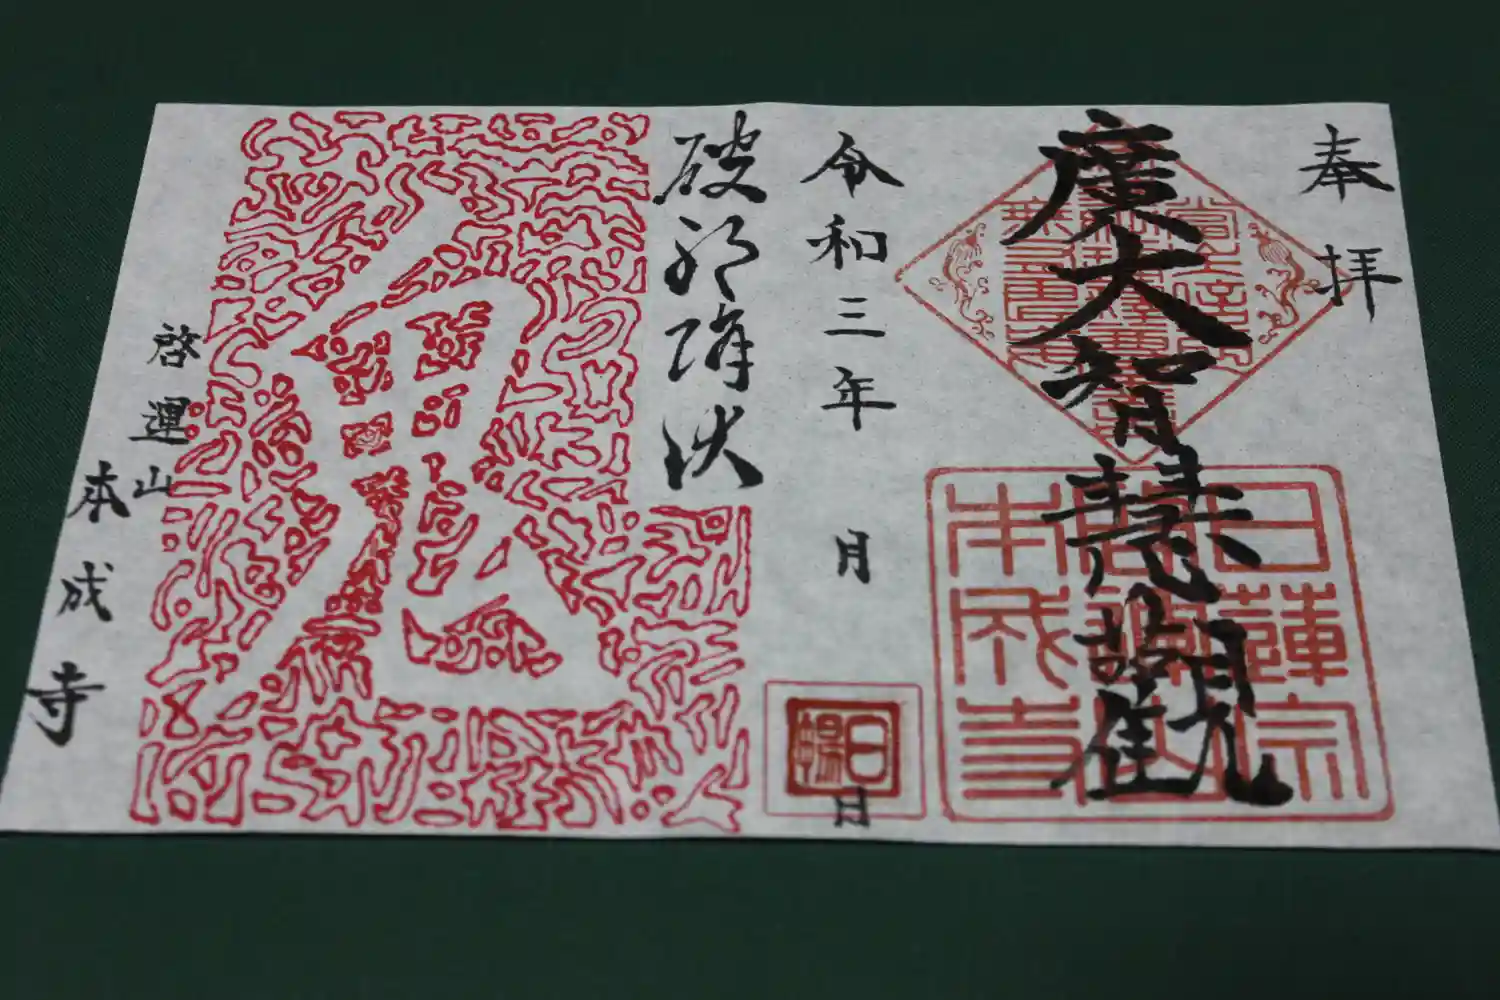 奉拝
廣大智慧観
日蓮宗
啓運山
本成寺
令和三年 月 日
日暢
破邪降伏
啓運山
本成寺